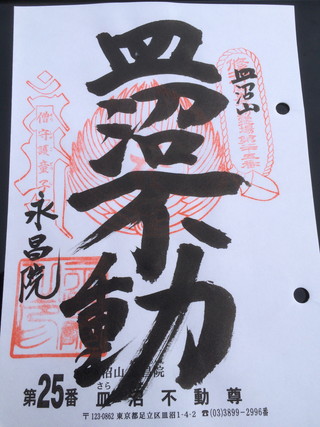 皿沼山
皿沼不動
僧守護童子
永昌院
さら
第25番 皿沼不動尊
〒123-0862 東京都足立区皿沼1-4-2 ☎(03)3899-2996番